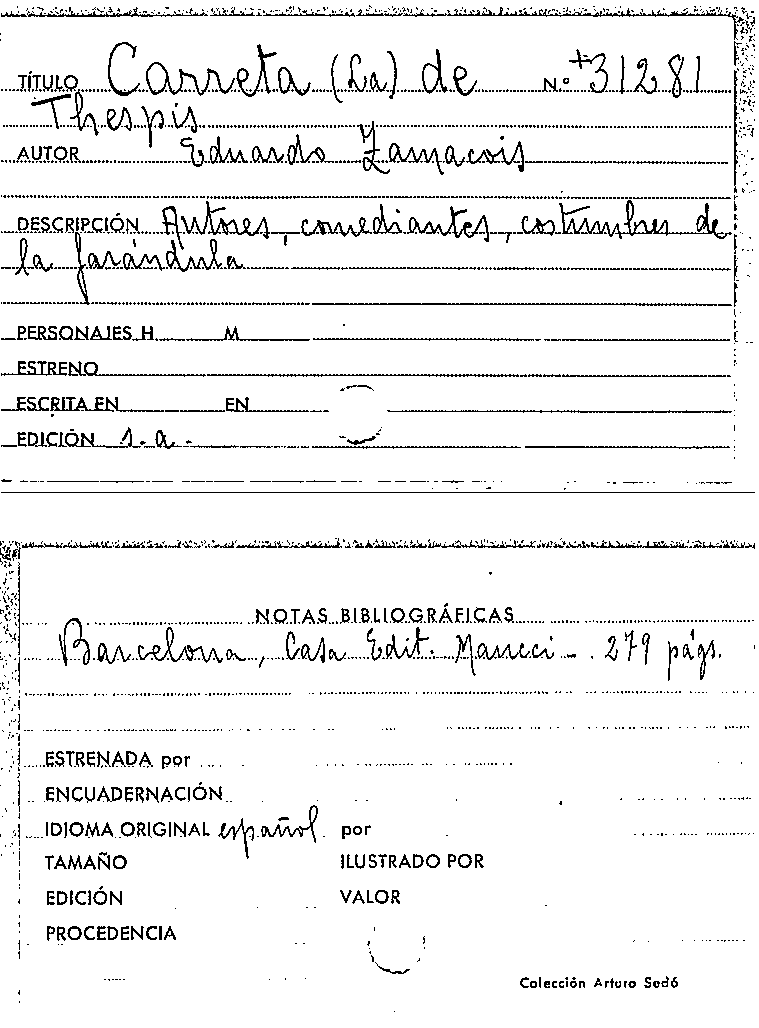 TÍTULO Carreta (La) de N.º +31281
Thespis
AUTOR Eduardo Zamacois
DESCRIPCIÓN Autores, comediantes, costumbres de
la farándula
PERSONAJES H M
ESTRENO
ESCRITA EN EN
EDICIÓN s.a.
NOTAS BIBLIOGRÁFICAS
Barcelona, Casa Edit. Maucci - 279 págs.
ESTRENADA por
ENCUADERNACIÓN
IDIOMA ORIGINAL español por
TAMAÑO ILUSTRADO POR
EDICIÓN VALOR
PROCEDENCIA
Colección Arturo Sedó